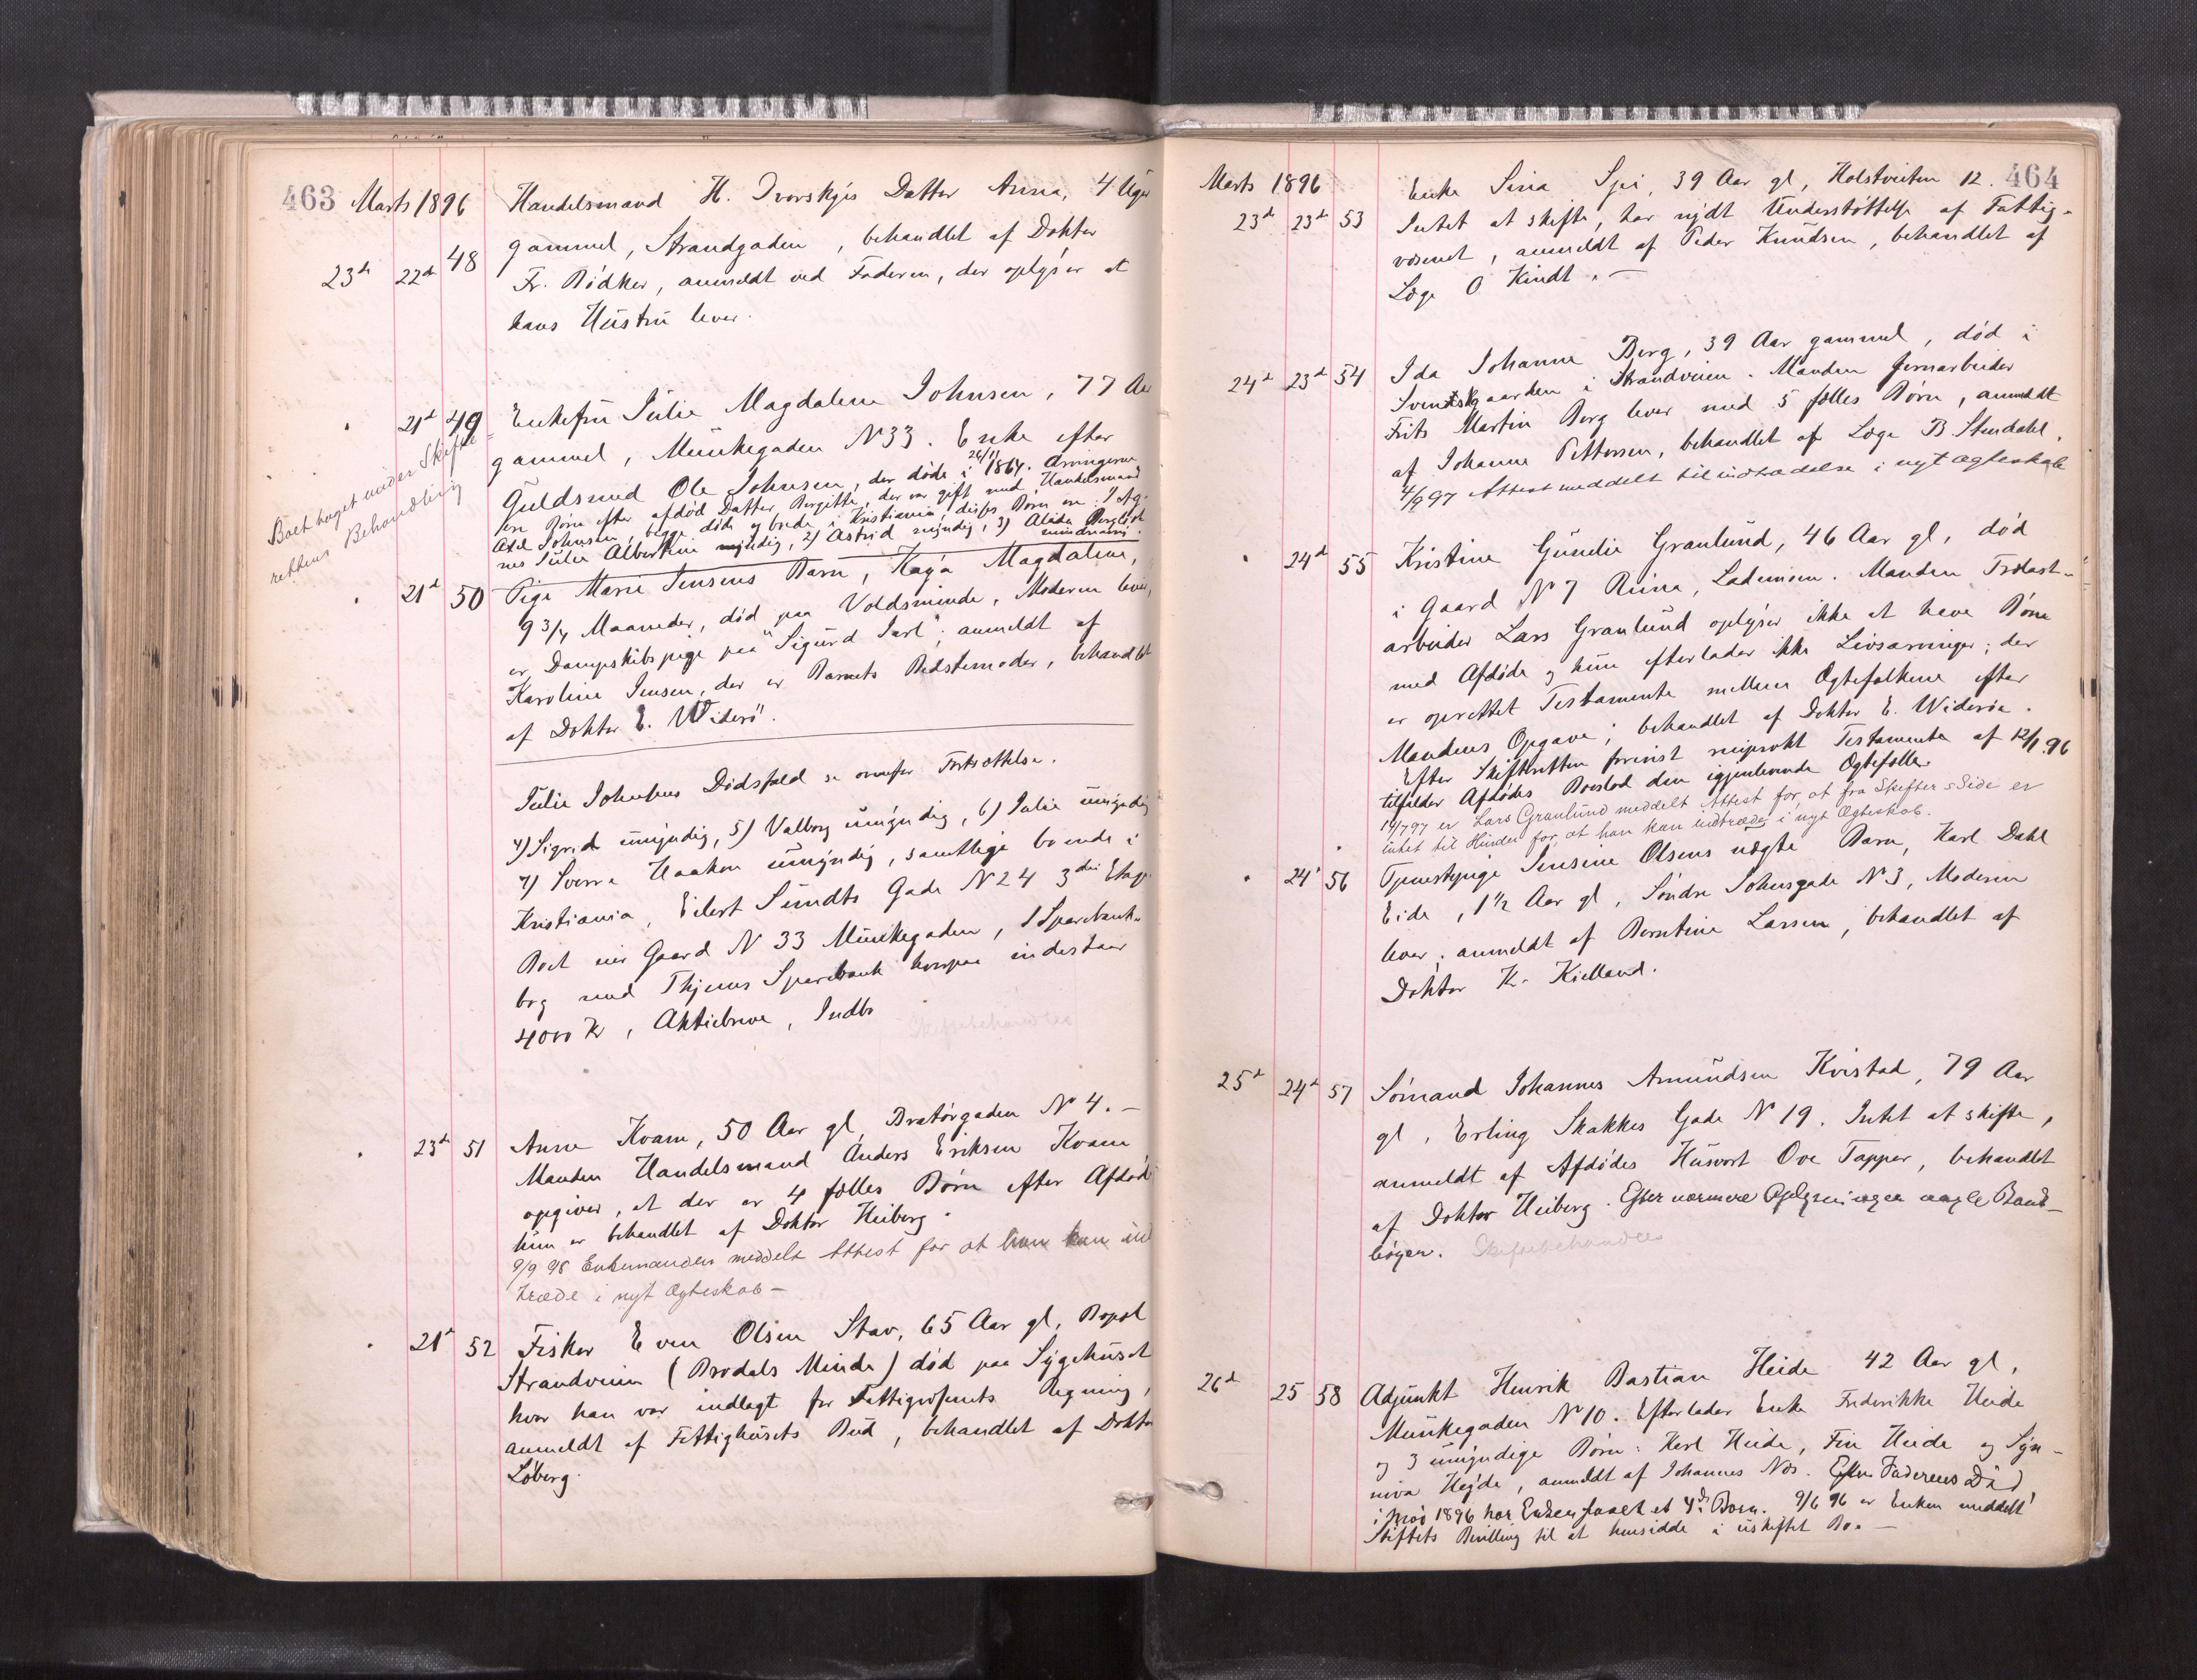 463 Marts 1896 Handelsmand H. Dvorskyis Datter Anna, 4 Uger
23d 22d 48 gammel, Strandgaden, behandlet af Doktor
Fr. Bødker, anmeldt ved Faderen, der oplyser at
hans Hustru lever.
21d 49 Enkefru Julie Magdalene Johnsen, 77 Aar
gammel, Munkegaden No 33. Enke efter
Guldsmed Ole Johnsen, der døde i 26/11 1864. Arvingerne
ere Børn efter afdød Datter Bergitte, der var gift med Handelsmand
Axel Johnsen, begge døde og boede i Kristiania, disses Børn ere: 1 Ag-
nes Julie Albertine myndig, 2) Astrid myndig, 3) Alida Bergliot
mindreaarig.
Boet taget under Skifte-
rettens Behandling
21d 50 Pige Marie Jensens Barn, Kaja Magdalene,
9 3/4 Maaneder, død paa Voldsminde, Moderen lever,
er Dampskibspige paa "Sigurd Jarl"; anmeldt af
Karoline Jensen, der er Barnets Bedstemoder, behandlet
af Doktor E. Widerö.
Julie Johnsens Dødsfald se ovenfor Fortsættelse.
4) Sigrid umyndig, 5) Valborg umyndig, 6) Julie umyndig
7) Sverre Haakon umyndig, samtlige boende i
Kristiania, Eilert Sundts Gade No 24 3die Etage
Boet eier Gaard No 33 Munkegaden, 1 Sparebank-
bog med Thjems Sparebank hvorpaa indestaar
4000 Kr, Aktiebreve, Indbo
Skiftebehandles
23d 51 Anne Kvam, 50 Aar gl, Bratørgaden No 4. -
Manden Handelsmand Anders Eriksen Kvam
opgiver, at der er 4 fælles Børn efter Afdøde
hun er behandlet af Doktor Heiberg.
9/9 98 Enkemanden meddelt Attest for at han kan ind
træde i nyt Ægteskab -
21d 52 Fisker Even Olsen Stav, 65 Aar gl, Bopæl
Strandveien (Brodals Minde) død paa Sygehuset
hvor han var indlagt for Fattigvæsenets Regning,
anmeldt af Fattighusets Bud, behandlet af Doktor
Löberg.
Marts 1896 Enke Sina Spi, 39 Aar gl, Holstveiten 12. 464
23d 23d 53 Intet at skifte, har nydt Understøttelse af Fattig-
væsenet, anmeldt af Peder Knudsen, behandlet af
Læge O Kindt. -
24d 23d 54 Ida Johanne Berg, 39 Aar gammel, død i
Svenskgaarden i Strandveien. Manden Jernarbeider
Frits Martin Berg lever med 5 fælles Børn, anmeldt
af Johanne Pettersen, behandlet af Læge B. Stendahl.
4/9 97 Attest meddelt til indtrædelse i nyt Ægteskab
24d 55 Kristine Gundie Granlund, 46 Aar gl, død
i Gaard No 7 Ruina, Lademoen. Manden Trælast-
arbeider Lars Granlund oplyser ikke at have Børn
med Afdøde og hun efterlader ikke Livsarvinger; der
er oprettet Testamente mellem Ægtefolkene efter
Mandens Opgave; behandlet af Doktor E. Widerøe.
Efter Skifteretten forevist reciprokt Testamente af 12/1.96
tilfalder Afdødes Boeslod den igjenlevende Ægtefælle.
14/7 97 er Lars Granlund meddelt Attest for, at fra Skiftets Side er
intet til Hinder for, at han kan indtræde i nyt Ægteskab.
24' 56 Tjenestepige Jensine Olsens uægte Barn, Karl Dahl
Eide, 1 1/2 Aar gl, Søndre Johnsgade No 3, Moderen
lever; anmeldt af Berntine Larsen, behandlet af
Doktor K. Kielland.
25d 24d 57 Sømand Johannes Amundsen Kvistad, 79 Aar
gl, Erling Skakkes Gade No 19. Intet at skifte,
anmeldt af Afdødes Husvert Ove Tapper, behandlet
af Doktor Heiberg. Efter nærmere Oplysninger nogle Bank-
bøger. Skiftebehandles
26d 25 58 Adjunkt Henrik Bastian Heide 42 Aar gl,
Munkegaden No 10. Efterlader Enke Frederikke Heide
og 3 umyndige Børn: Karl Heide, Fin Heide og Syn-
nøva Hejde, anmeldt af Johannes Næs. Efter Faderens Død
i Mai 1896 har Enken faaet et 4de Barn. 9/6 96 er Enken meddelt
Skiftets Bevilling til at hensidde i uskiftet Bo. -